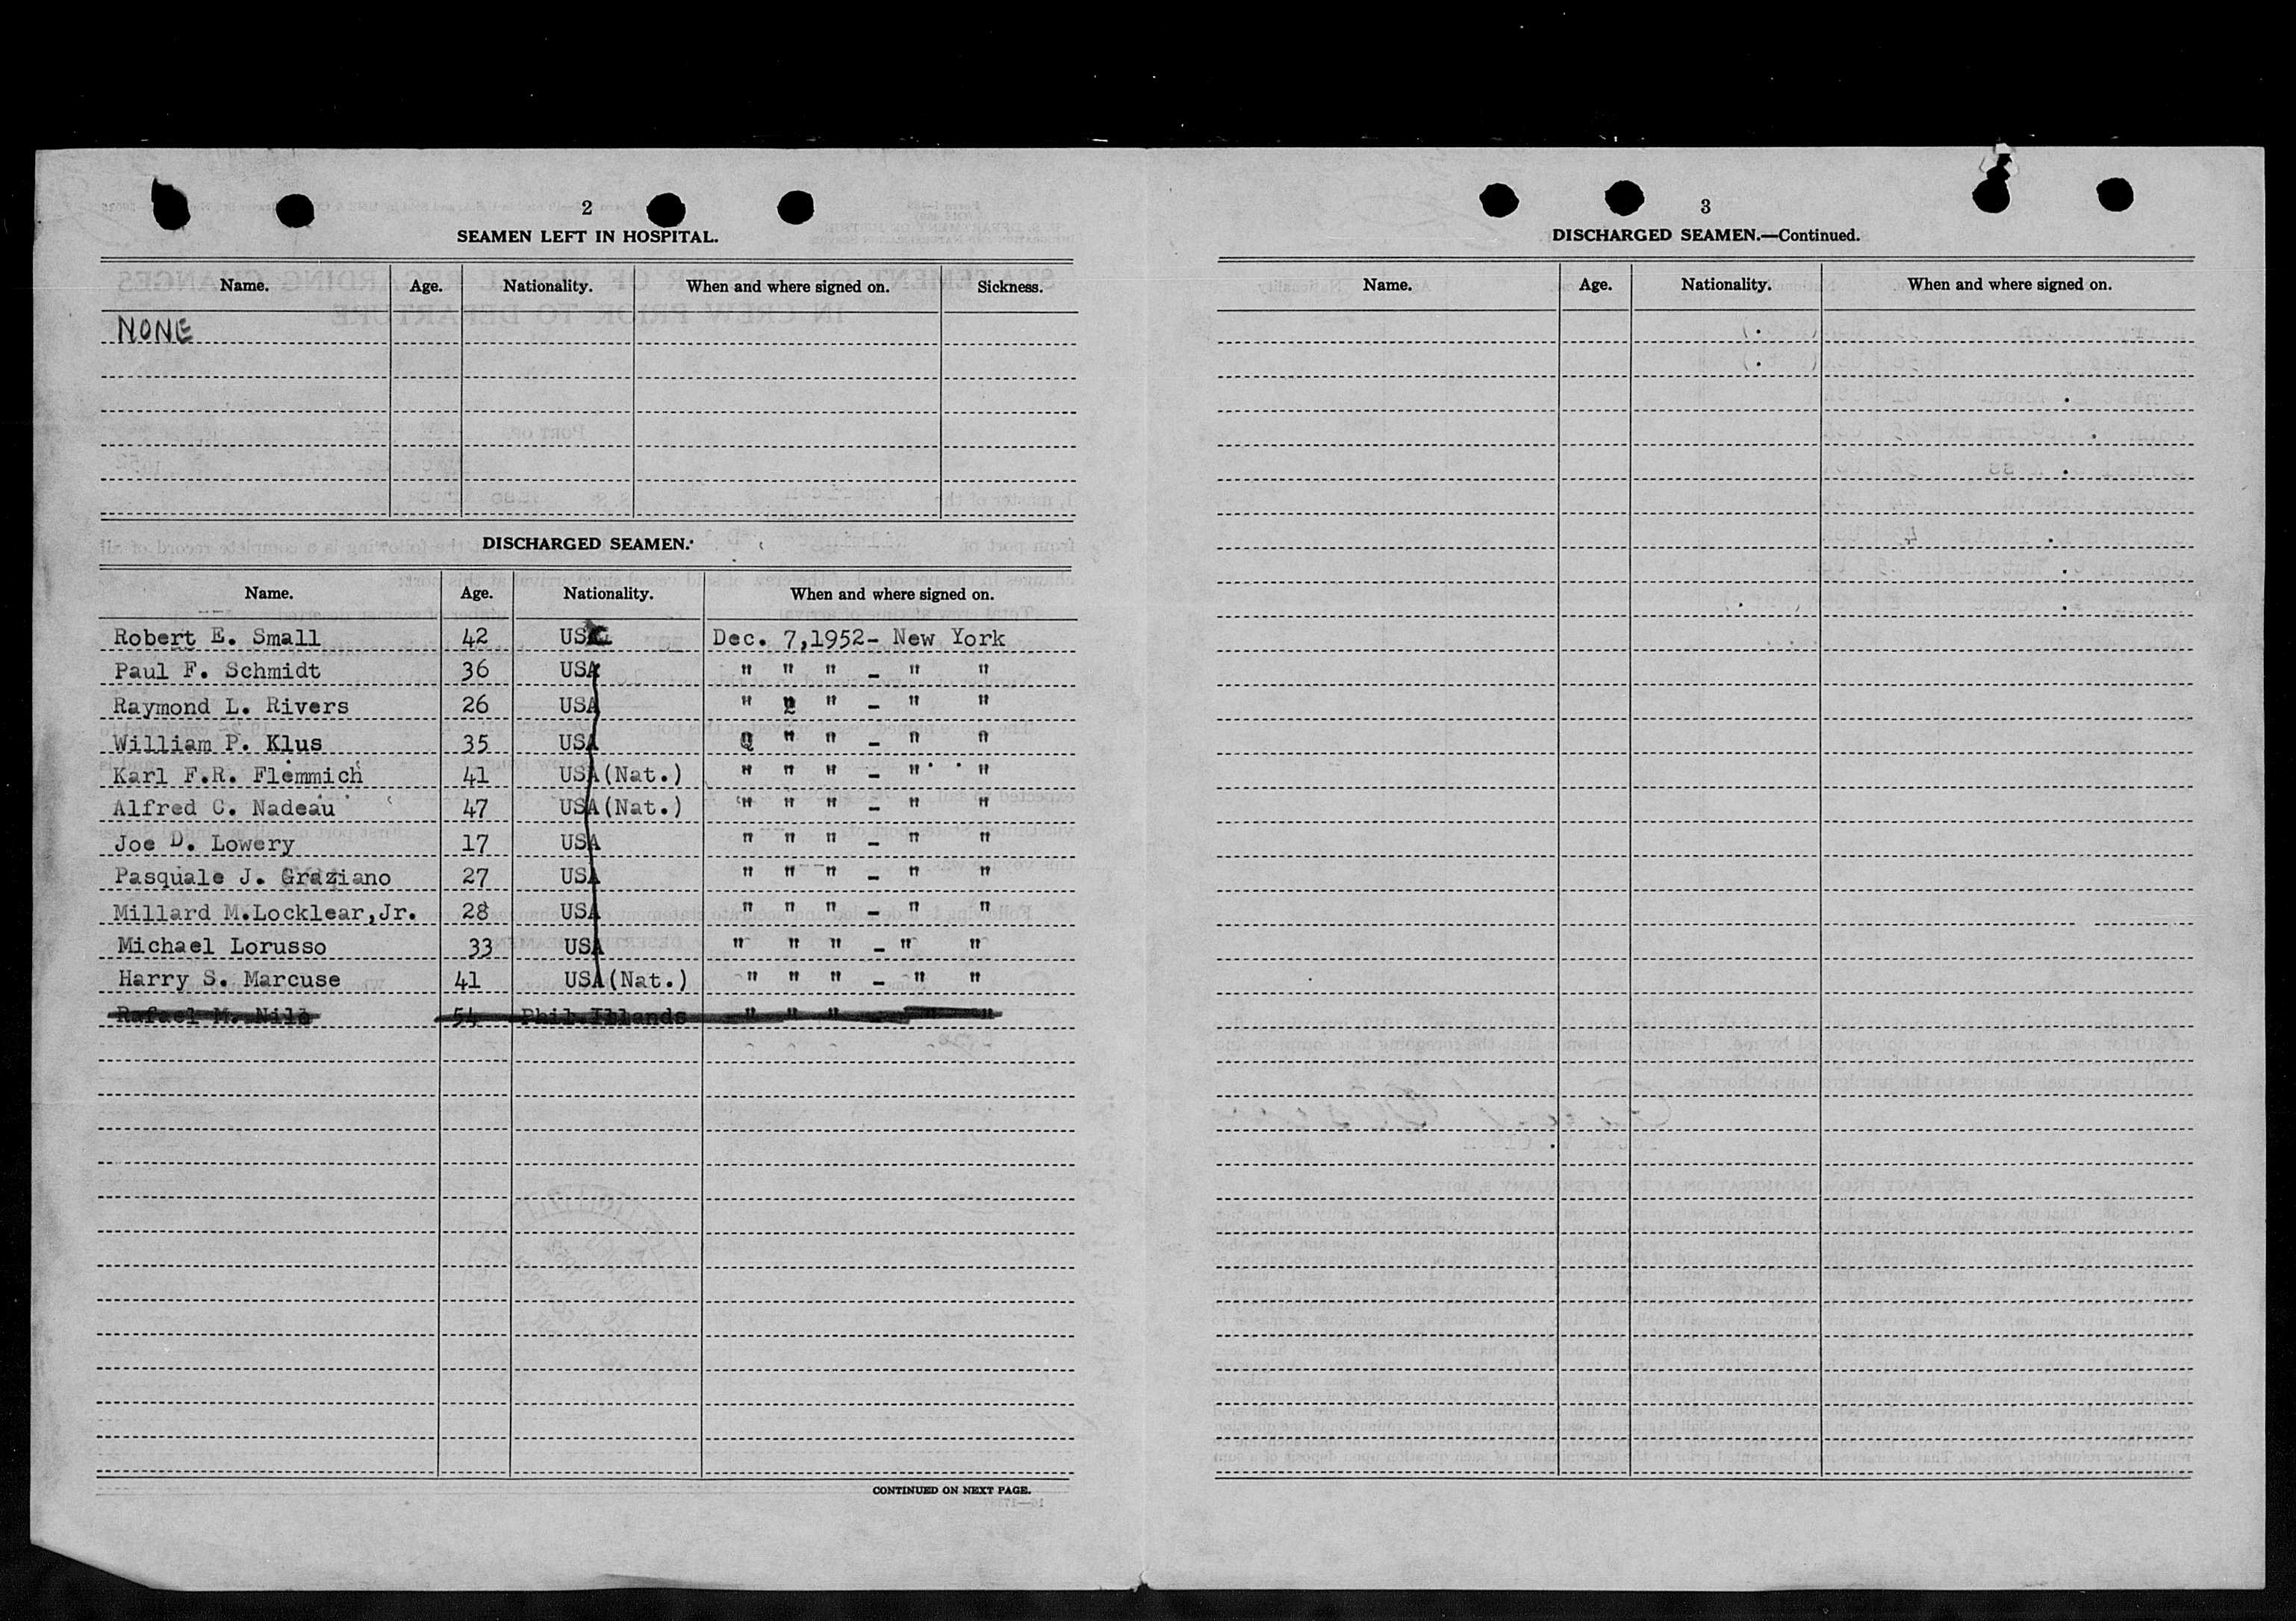 2
SEAMEN LEFT IN HOSPITAL.
Name. Age. Nationality. When and where signed on. Sickness.
NONE
DISCHARGED SEAMEN.
Name. Age. Nationality. When and where signed on.
Robert E. Small 42 USA Dec. 7,1952- New York
Paul F. Schmidt 36 USA " " " - " "
Raymond L. Rivers 26 USA " " " - " "
William P. Klus 35 USA " " " - " "
Karl F.R. Flemmich 41 USA(Nat.) " " " - " "
Alfred C. Nadeau 47 USA(Nat.) " " " - " "
Joe D. Lowery 17 USA " " " - " "
Pasquale J. Graziano 27 USA " " " - " "
Millard M.Locklear,Jr. 28 USA " " " - " "
Michael Lorusso 33 USA " " " - " "
Harry S. Marcuse 41 USA(Nat.) " " " - " "
Rafael M. 54 " " " - " "
CONTINUED ON NEXT PAGE.
3
DISCHARGED SEAMEN.—Continued.
Name. Age. Nationality. When and where signed on.